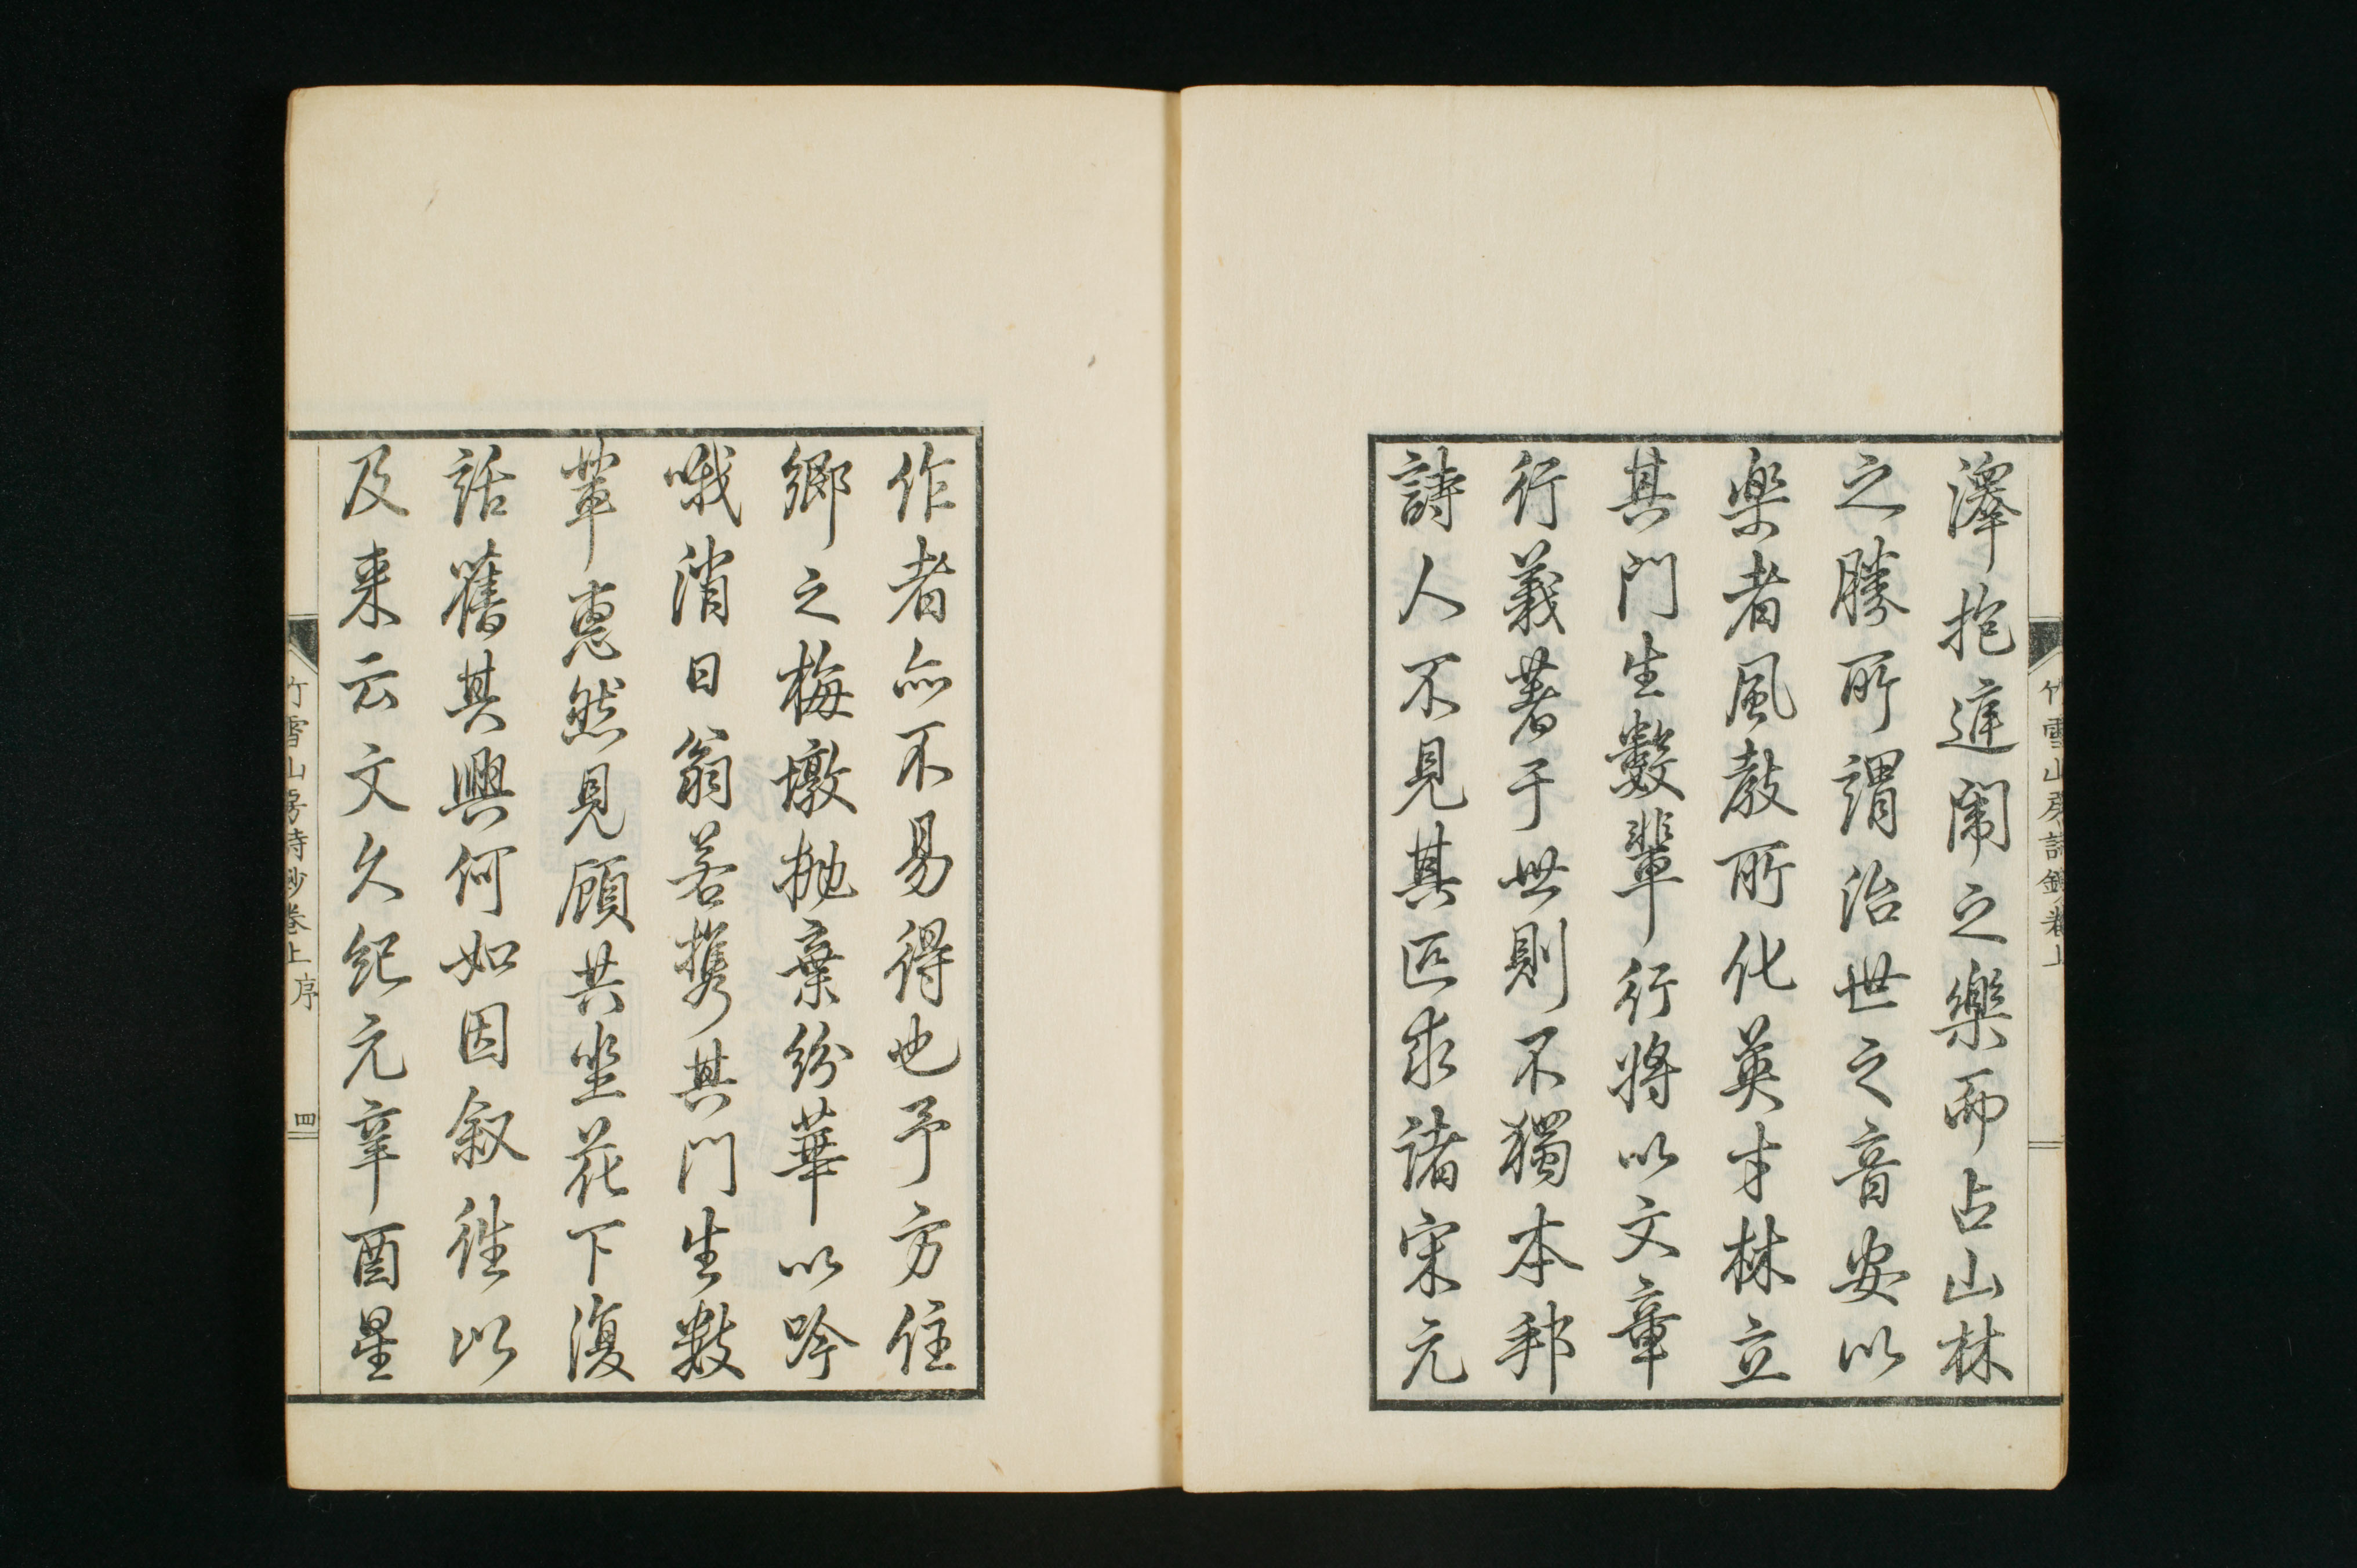 澤抱進闹之樂而占山林
之勝所謂治世之音安以
楽者風教所化英才林立
其門生數輩行將以文章
行義著于世則不獨本邦
詩人不見其匹求諸宋元
竹雪山房詩鈔卷上
作者亦不易得也予方住
鄉之梅墩抛棄紛華以吟
哦消日翁若携其門生數
輩惠然見顧共坐花下復
話舊其興何如因叙往以
及来云文久紀元辛酉星
竹雪山房詩鈔卷上 序 四